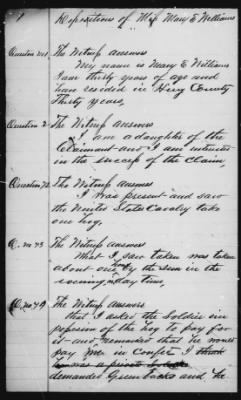 1 Depositions of Mrs Mary E Williams
Question No 1 The Witness answers
My name is Mary E Williams
I am thirty years of age and
have resided in County
Thirty years,
Question 2 The Witness answers
I am a daughter of the
Claimant and I am interested
in the success of the claim
Question 72 The Witness answers
I was present and saw
the United States Cavalry take
one hog,
Q. no 43 The Witness answers
What I saw taken was taken
about one hour by the sun in the
evening day time,
Q. no 49 The Witness answers
that I asked the Soldier in
possession of the hog to pay for
it and remarked that he would
pay me in confed I think
he was a private Soldier
demanded Green backs and he